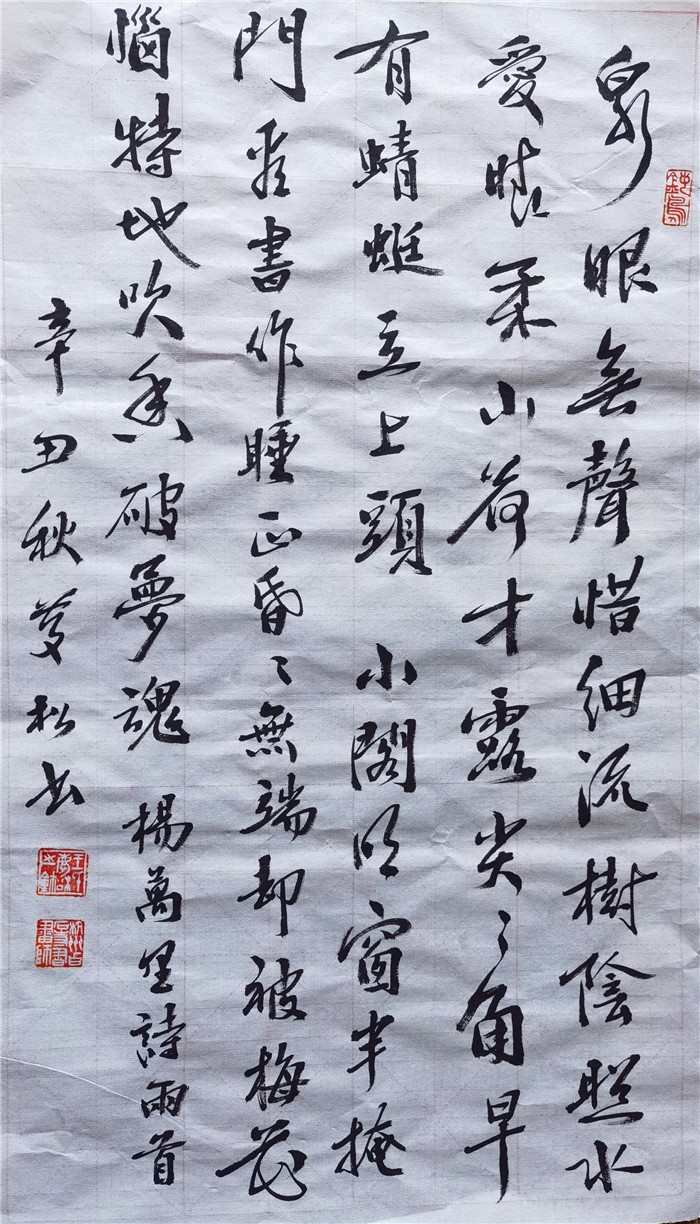 泉眼無聲惜細流樹陰照水
愛晴柔小荷才露尖々角早
有蜻蜓立上頭 小閣明窗半掩
門看書作睡正昏々無端却被梅花
惱特地吹香破夢魂 楊萬里詩兩首
辛丑秋松书